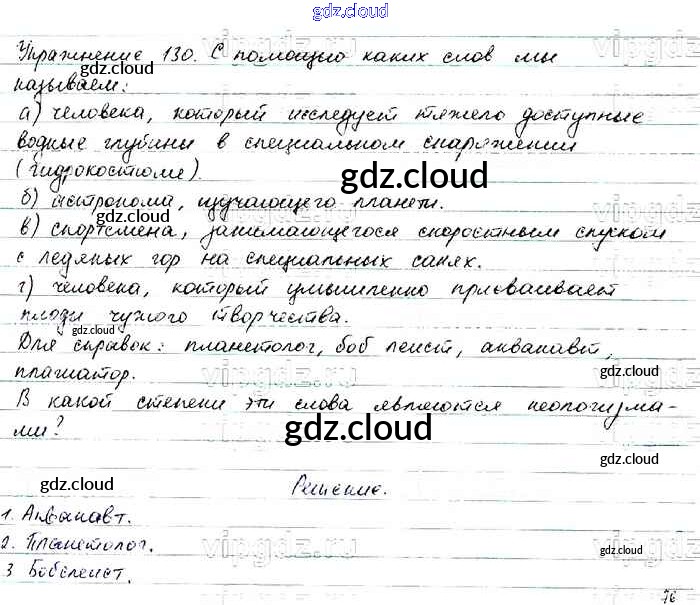 gdz.cloud
Упражнение 130. С помощью каких слов мы
gdz.cloud
называем:
а) человека, который исследует тяжело доступные
водные глубины в специальном снаряжении
(гидрокостюме).
gdz.cloud
gdz.cloud
б) астронома, изучающего планеты.
в) спортсмена, занимающегося скоростным спуском
с ледяных гор на специальных санях.
gdz.cloud
г) человека, который умышленно присваивает
плоды чужого творчества.
gdz.cloud
Для справок: планетолог, боб леист, акванавт,
плагиатор.
gdz.cloud
В какой степени эти слова являются неологизма-
ми?
gdz.cloud
gdz.cloud
gdz.cloud
Решение.
1. Акванавт.
2. Планетолог.
vipgdz.ru
gdz.cloud
3 Бобслеист.
76